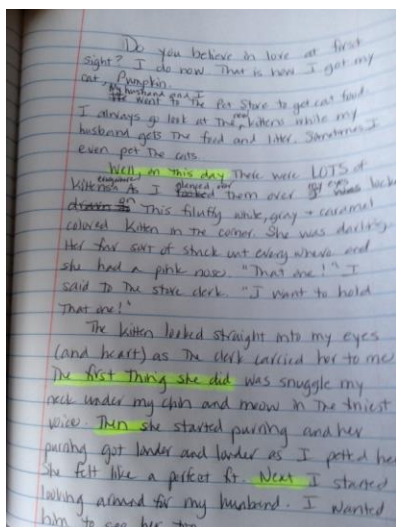 Do you believe in love at first
sight? I do now. That is how I got my
cat, Pumpkin.
My husband and I
went to the Pet Store to get cat food.
I always go look at the kittens while my
husband gets the food and litter. Sometimes I
even pet the cats.
Well, on this day there were LOTS of
kittens everywhere. As I glanced over them over my eyes locked
drawn on This fluffy white, gray + caramel
colored kitten in the corner. She was darling.
Her fur sort of stuck out every where and
she had a pink nose. "That one!" I
said to the store clerk. "I want to hold
that one!"
The kitten looked straight into my eyes
(and heart) as the clerk carried her to me.
The first thing she did was snuggle my
neck under my chin and meow in the tiniest
voice. Then she started purring and her
purring got louder and louder as I petted her.
She felt like a perfect fit. Next I started
looking around for my husband. I wanted
him to see her too.